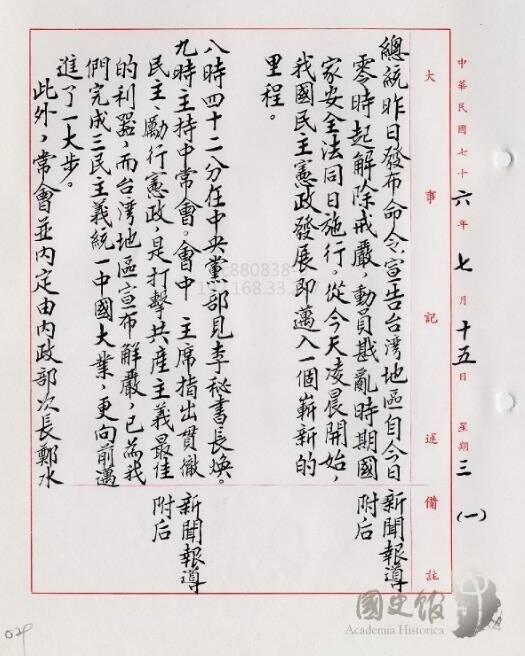 中華民國七十六年七月十五日 星期三 (一)
大事記述
備註
總統昨日發布命令,宣告台灣地區自今日
零時起解除戒嚴,動員戡亂時期國
家安全法同日施行。從今天凌晨開始,
我國民主憲政發展即邁入一個嶄新的
里程。
新聞報導
附后
八時四十二分在中央黨部見李秘書長煥。
九時主持中常會。會中 主席指出貫徹
民主、勵行憲政,是打擊共產主義最佳
的利器,而台灣地區宣布解嚴,已為我
們完成三民主義統一中國大業,更向前邁
進了一大步。
此外,常會並內定由內政部次長鄭水
新聞報導
附后
880838
168.33.2
國史館
Academia Historica
029